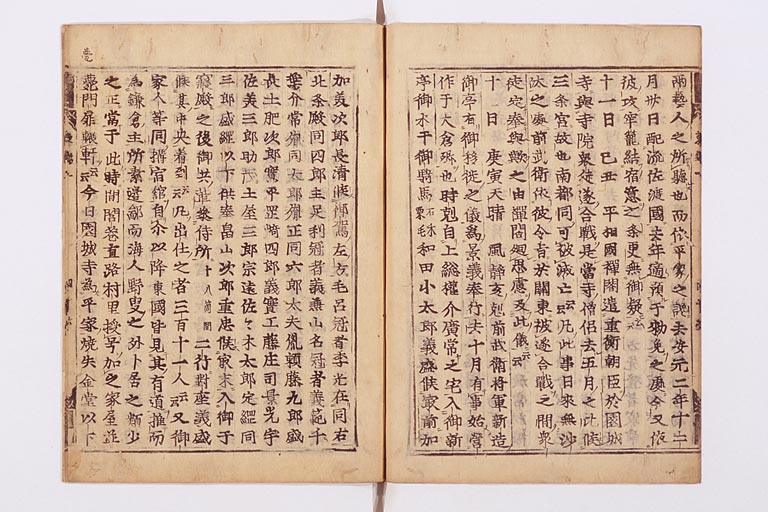 兩藝人之所驗也而依平家之讒去安元二年十二
月卅日配流佐渡國去年適預于勅免之處今又依
彼攻牢籠結宿意之条更無御疑云々
十一日 己丑 平相國禪閤遣重衡朝臣於園城
寺與寺院衆徒遂合戰是當寺僧侶去五月之比候
三条宮故也南都同可被滅亡云々凡此事日來無沙
汰之處前武衛依彼令旨於關東被遂合戰之間衆
徒定奉與歟之由禪閤廻思慮及此儀云々
十二日 庚寅天晴 風靜亥剋前武衛將軍新造
御亭有御移徙之儀爲景義奉行去十月有事始營
作于大倉郷也時剋自上総權介廣常之宅入御新
亭御水干御騎馬石禾栗毛和田小太郎義盛候最前加
加美次郎長清候御駕左方毛呂冠者季光在同右
北条殿同四郎主足利冠者義兼山名冠者義範千
葉介常胤同太郎胤正同六郎太夫胤頼藤九郎盛
長土肥次郎實平岡崎四郎義實工藤庄司景光宇
佐美三郎助茂土屋三郎宗遠佐々木太郎定綱同
三郎盛綱以下供奉畠山次郎重忠候最末入御于
寢殿之後御共輩參侍所十八箇間二行對座義盛
候其中央着到云々凡出仕之者三百十一人云々又御
家人等同搆宿舘自尒以降東國皆見其有道推而
爲鎌倉主所素邊鄙海人野叟之外卜居之類少
之正當于此時間閭巷直路村里授号加之家屋並
甍門扉輾軒云々今日園城寺爲平家燒失金堂以下